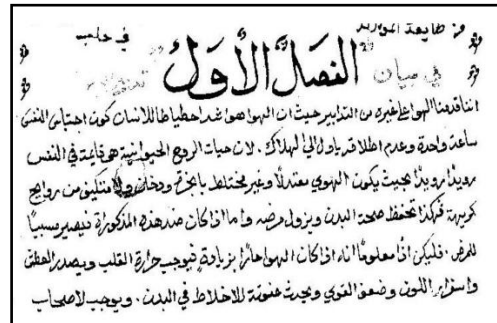 من طايفة الموارنه في حلب
الفصل الأول
في بيان
اننا قدمنا الهوا على غيره من التدابير حيث ان الهوا هو اشد احطياطا للانسان كون احتباس النفس
ساعة واحدة وعدم اطلاقه ياول الى الهلاك. لان حيات الروح الحيوانيه هو قايمة في النفس
رويدًا رويدًا بحيث يكون الهوي معتدلًا وغير مختلط بابخرةٍ ودخانٍ ولا متكيف من روايح
كريهة فهكذا تحفظ صحة البدن ويزول مرضه واما اذا كان ضد هذه المذكورة فيصير مسببًا
للمرض. فليكن اذًا معلومًا انه اذا كان الهوا حارًا بزيادةٍ فيوجب حرارة القلب ويصدر العطش
واسفرار اللون وضعف القوي ويحدث عفونة للاخلاط في البدن. ويوجب لاصحاب